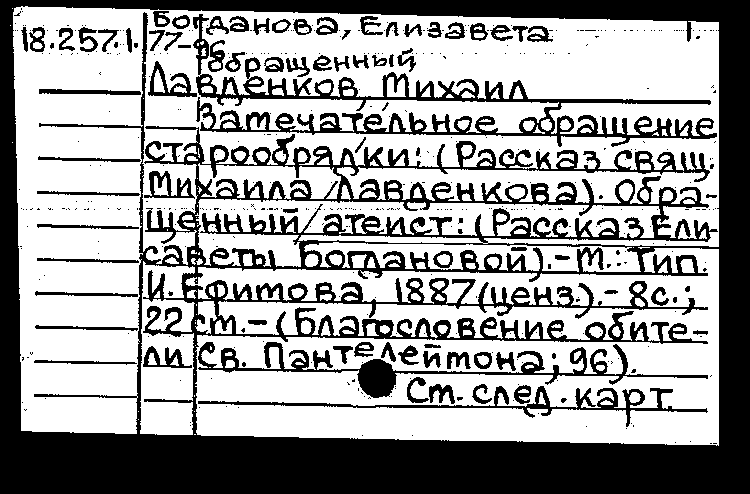 Богданова, Елизавета 1.
18.257.1. 77-96
обращенный
Лавденков, Михаил
Замечательное обращение
старообрядки: (Рассказ свящ.
Михаила Лавденкова). Обра-
щенный атеист: (Рассказ Ели-
саветы Богдановой).-М.: Тип.
И. Ефимова, 1887 (ценз.).- 8с.;
22 см.- (Благословение обите-
ли Св. Пантелеймона; 96).
См. след. карт.